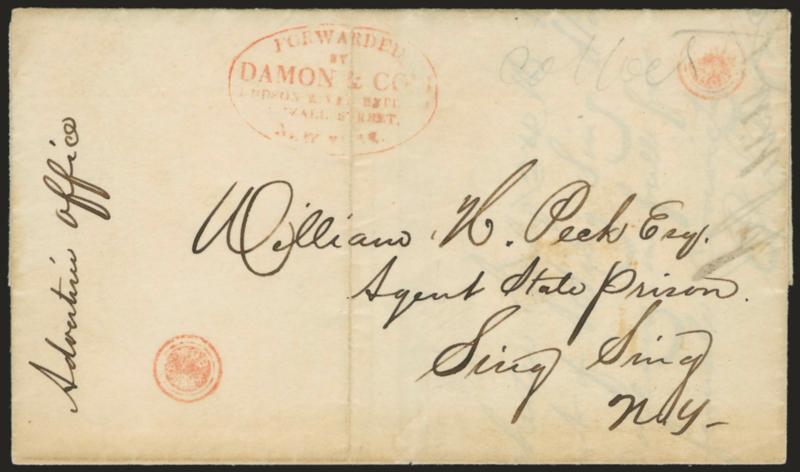 FORWARDED
BY
DAMON & CO
HUDSON RIVER
WALL STREET,
NEW YORK.
Collect
William H. Peck Esq.
Agent State Prison.
Sing Sing
N.Y-
Adverti office